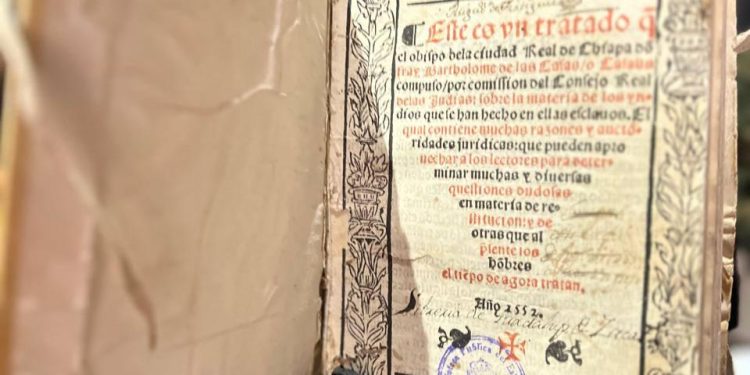 ¶ Este es vn tratado q̃
el obispo dela ciudad Real de Chiapa dõ
fray Bartholome de las Casas/o Casaus
compuso/por comission del Consejo Real
delas Indias: sobre la materia de los yn-
dios que se han hecho en ellas esclauos. El
qual contiene muchas razones y aucto-
ridades juridicas: que pueden apro
uechar a los lectores para deter-
minar muchas y diuersas
questiones dudosas
en materia de re-
stitucion: y de
otras que al
psente los
hõbres
el tiẽpo de agora tratan.
Año 1552.
Publica